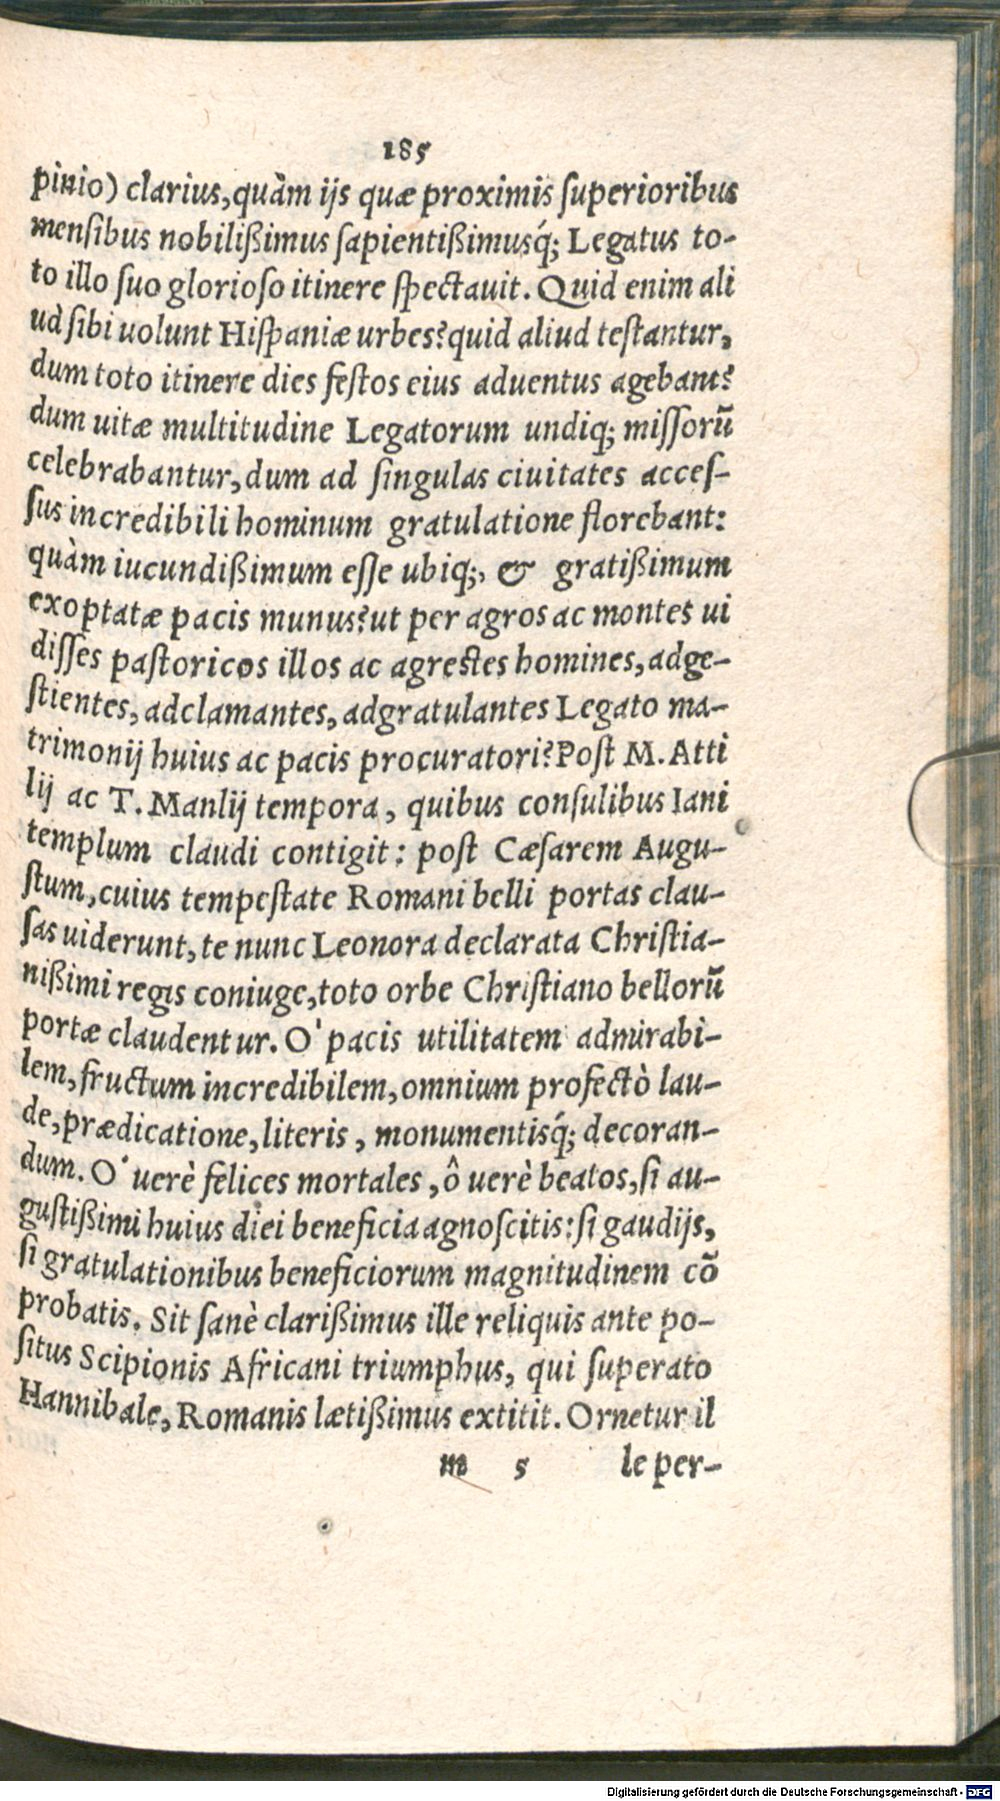 185
pinio) clarius, quàm ijs quæ proximis ſuperioribus
menſibus nobilißimus ſapientißimusq́; Legatus to-
to illo ſuo glorioſo itinere ſpectauit. Quid enim ali
ud ſibi uolunt Hiſpaniæ urbes? quid aliud teſtantur,
dum toto itinere dies feſtos eius aduentus agebant?
dum uitæ multitudine Legatorum undiq; miſſorū
celebrabantur, dum ad ſingulas ciuitates acceſ-
ſus incredibili hominum gratulatione florebant:
quàm iucundißimum eſſe ubiq;, & gratißimum
exoptatæ pacis munus? ut per agros ac montes ui
diſſes paſtoricos illos ac agreſtes homines, adge-
ſtientes, adclamantes, adgratulantes Legato ma-
trimonij huius ac pacis procuratori? Poſt M. Atti
lij ac T. Manlij tempora, quibus conſulibus Iani
templum claudi contigit: poſt Cæſarem Augu-
ſtum, cuius tempeſtate Romani belli portas clau-
ſas uiderunt, te nunc Leonora declarata Chriſtia-
nißimi regis coniuge, toto orbe Chriſtiano bellorū
portæ claudentur. O' pacis utilitatem admirabi-
lem, fructum incredibilem, omnium profectò lau-
de, prædicatione, literis, monumentisq́; decoran-
dum. O' uerè felices mortales, ô uerè beatos, ſi au-
guſtißimi huius diei beneficia agnoſcitis: ſi gaudijs,
ſi gratulationibus beneficiorum magnitudinem cō
probatis. Sit ſanè clarißimus ille reliquis ante po-
ſitus Scipionis Africani triumphus, qui ſuperato
Hannibale, Romanis lætißimus extitit. Ornetur il
m 5 le per-
Digitalisierung gefördert durch die Deutsche Forschungsgemeinschaft - DFG